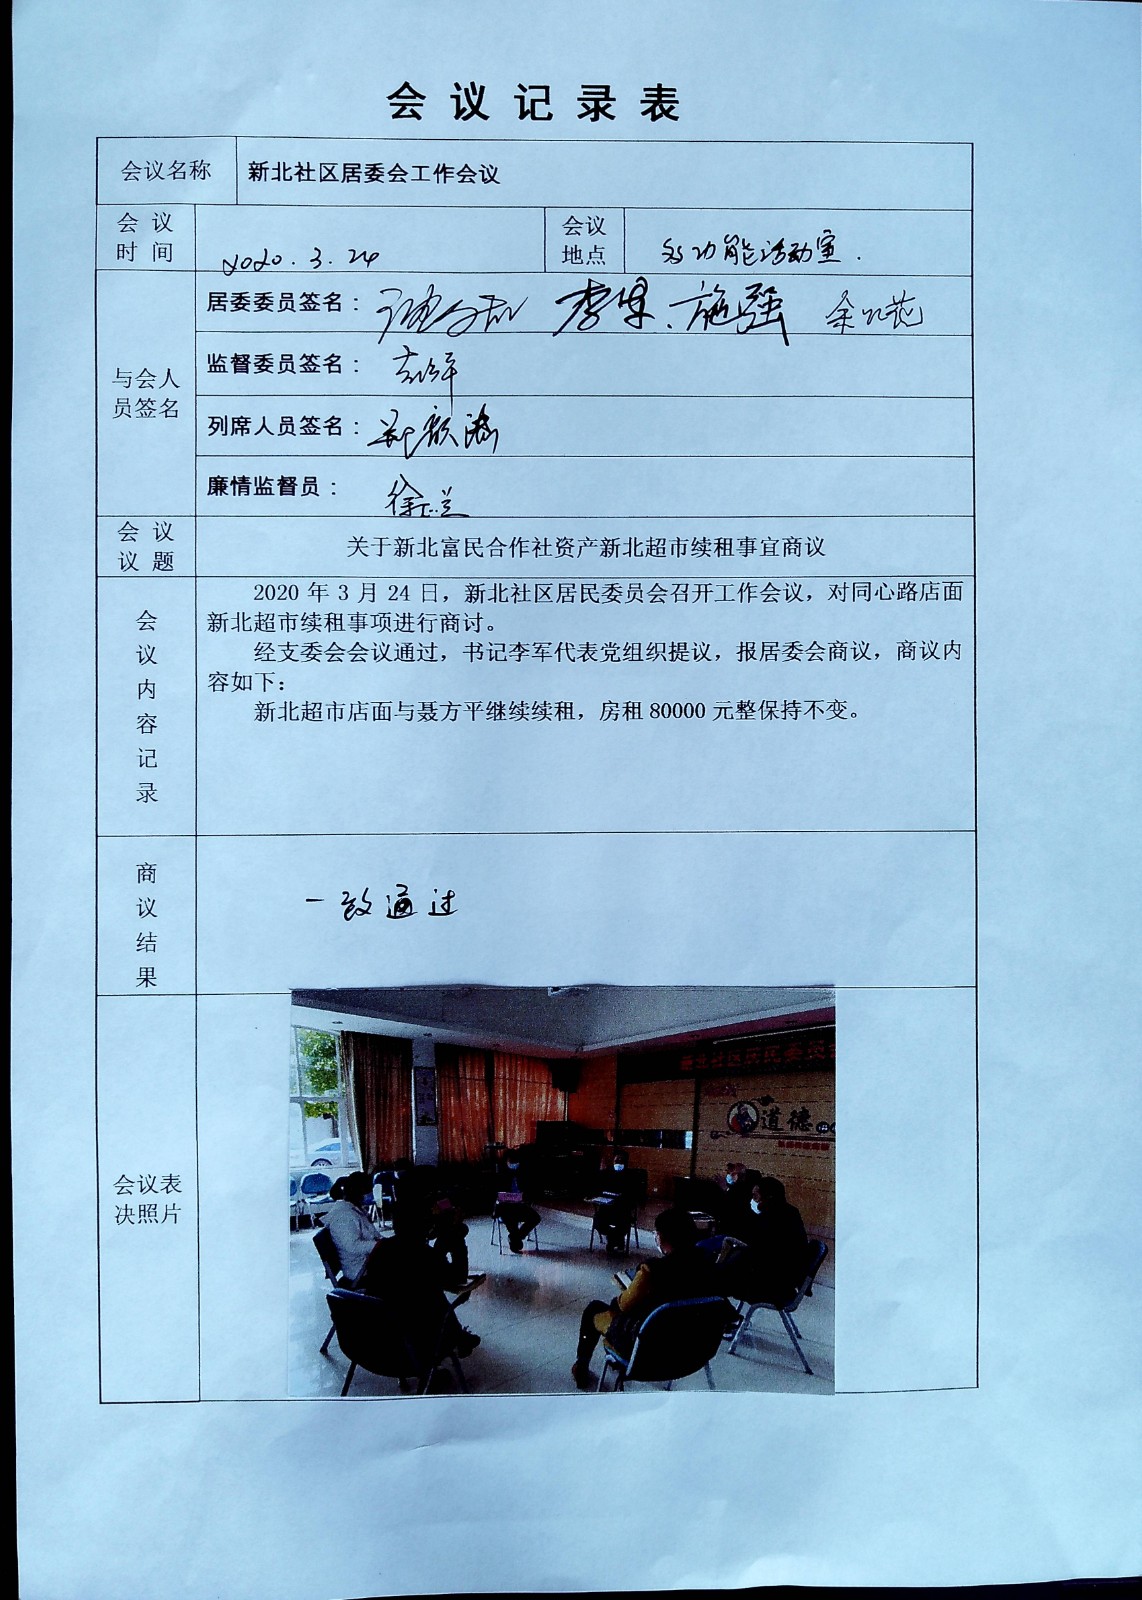 会议记录表
会议名称
新北社区居委会工作会议
会议
时间
2020.3.24
会议
地点
多功能活动室.
与会人
员签名
居委委员签名：
李军、施强
监督委员签名：
列席人员签名：
廉情监督员：
会议
议题
关于新北富民合作社资产新北超市续租事宜商议
会议内容记录
2020年3月24日，新北社区居民委员会召开工作会议，对同心路店面
新北超市续租事项进行商讨。
经支委会会议通过，书记李军代表党组织提议，报居委会商议，商议内
容如下：
新北超市店面与聂方平继续续租，房租80000元整保持不变。
商议结果
一致通过
会议表
决照片
新北社区居民委员会
道德